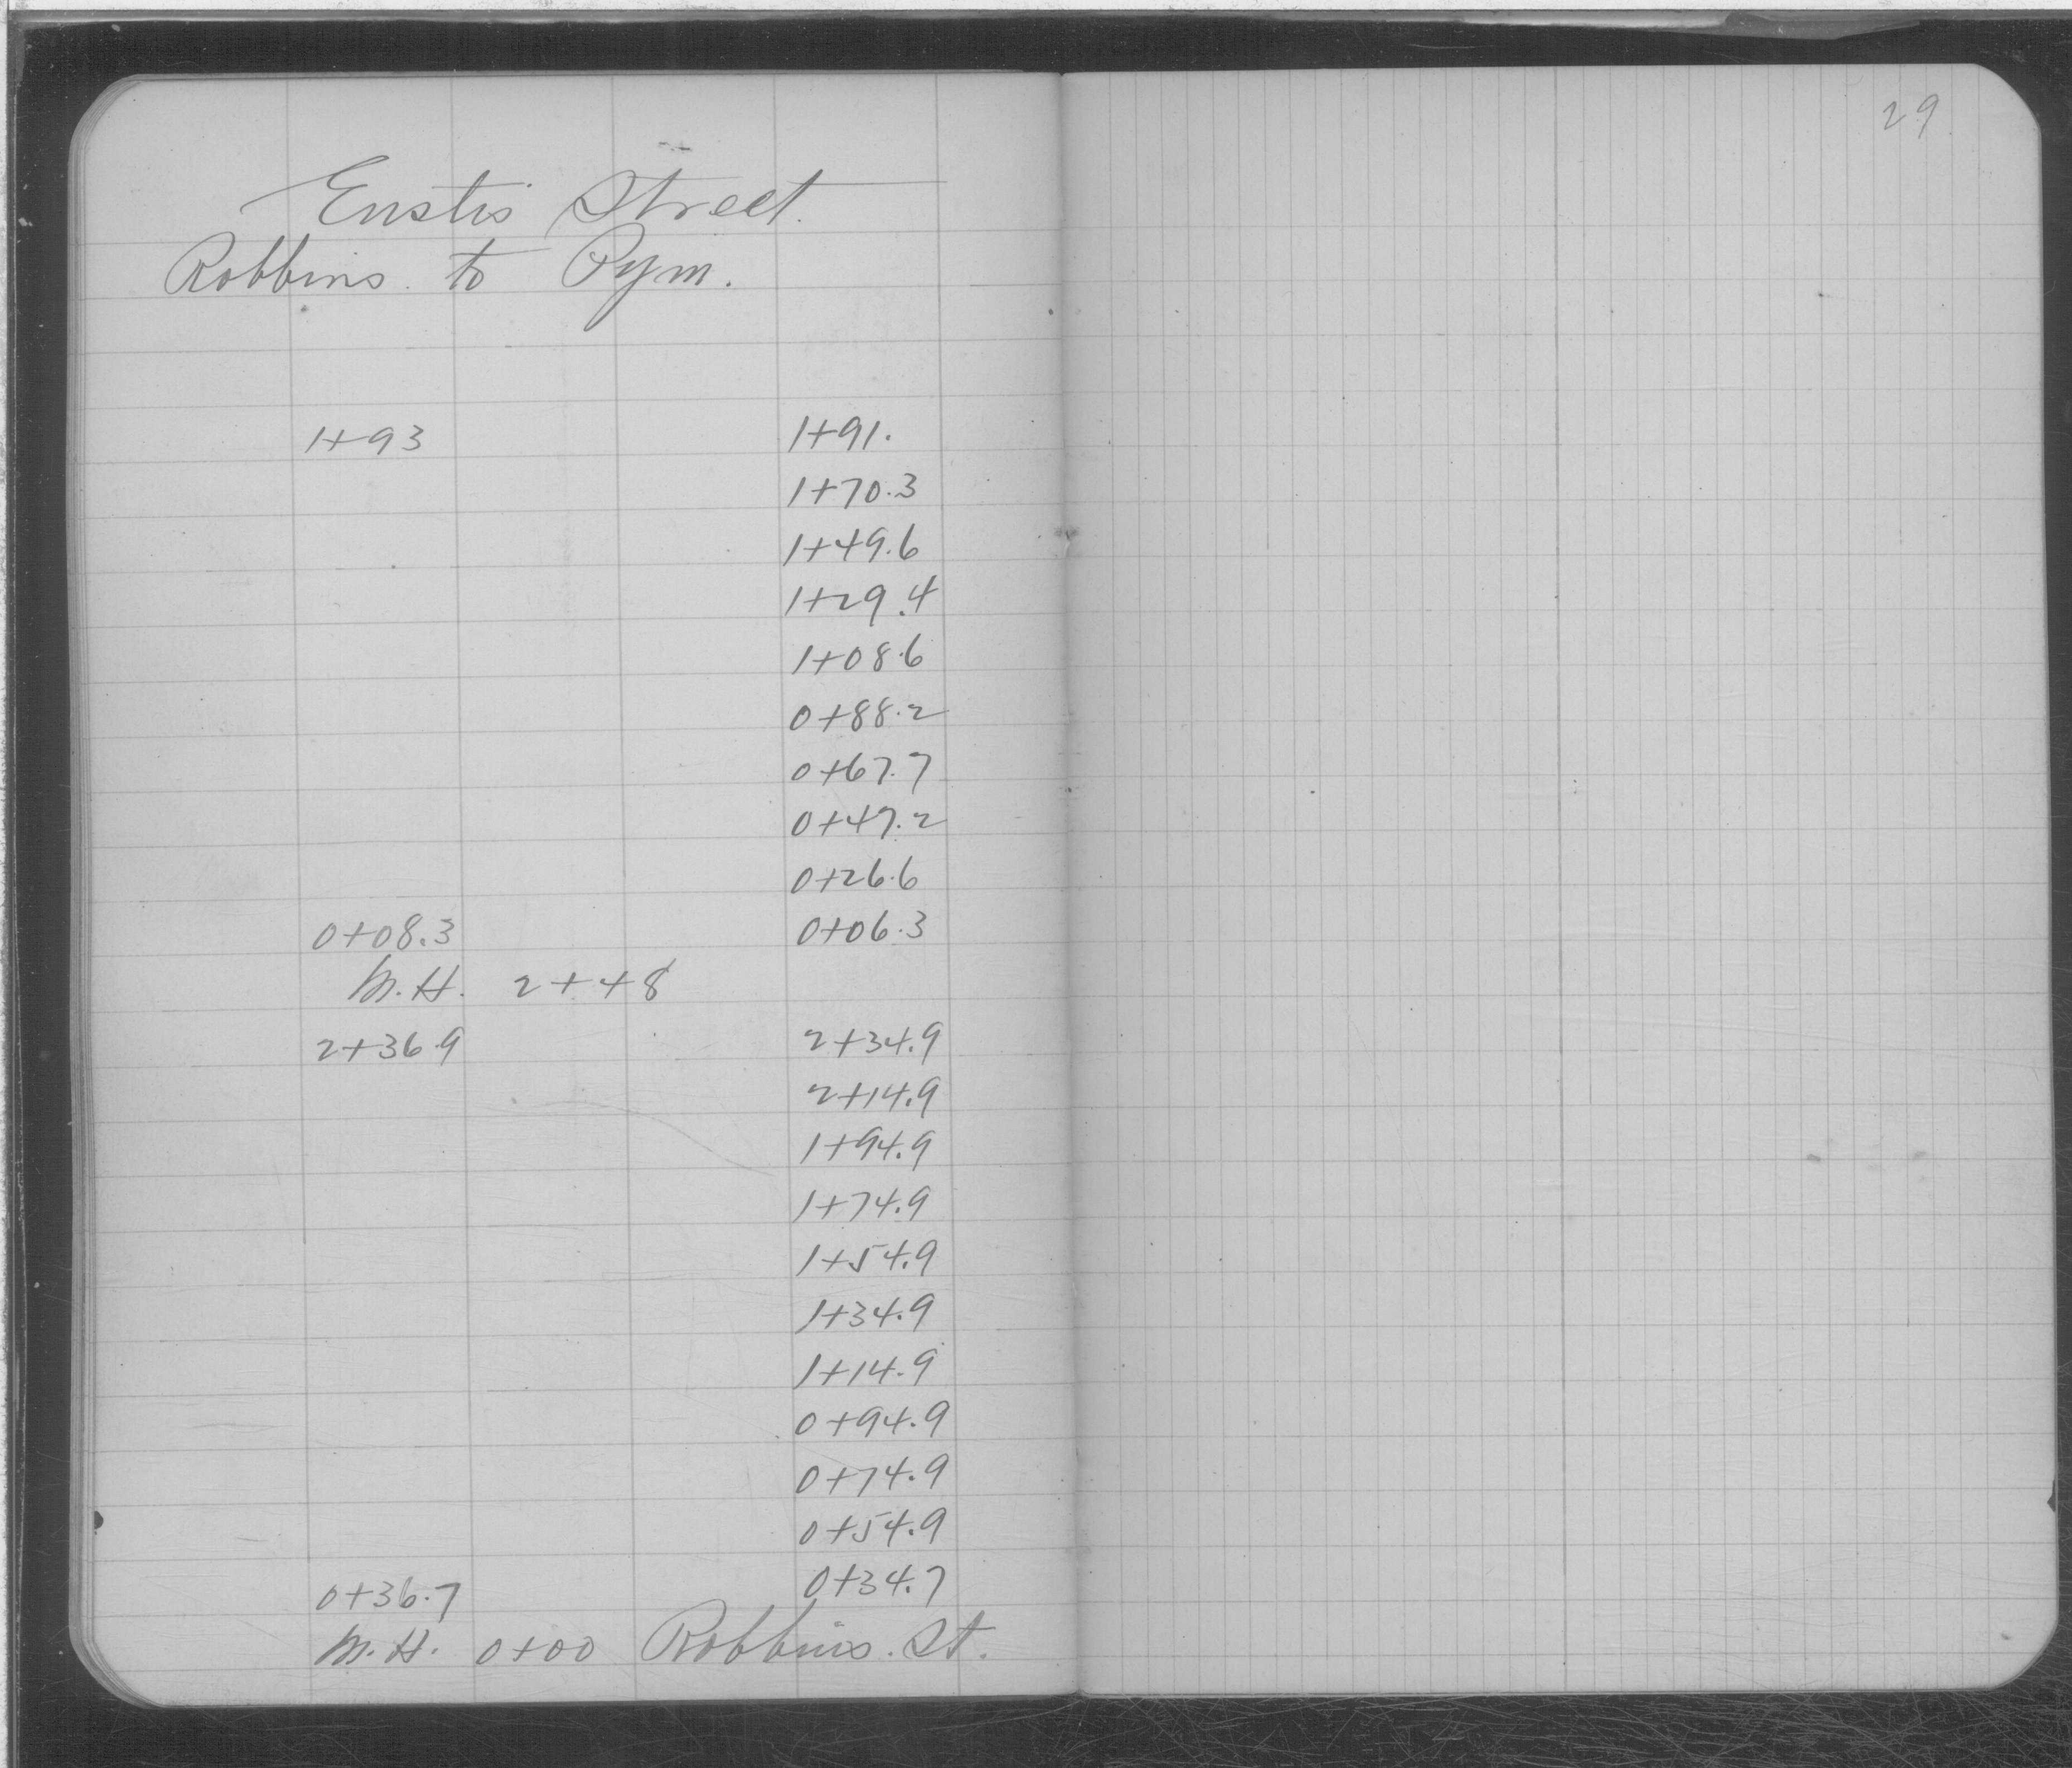 29
Eustis Street.
Robbins. to Pym.
1+93 1+91.
1+70.3
1+49.6
1+29.4
1+08.6
0+88.2
0+67.7
0+47.2
0+26.6
0+08.3 0+06.3
M.H. 2+48
2+36.9 2+34.9
2+14.9
1+94.9
1+74.9
1+54.9
1+34.9
1+14.9
0+94.9
0+74.9
0+54.9
0+36.7 0+34.7
M.H. 0+00 Robbins. St.